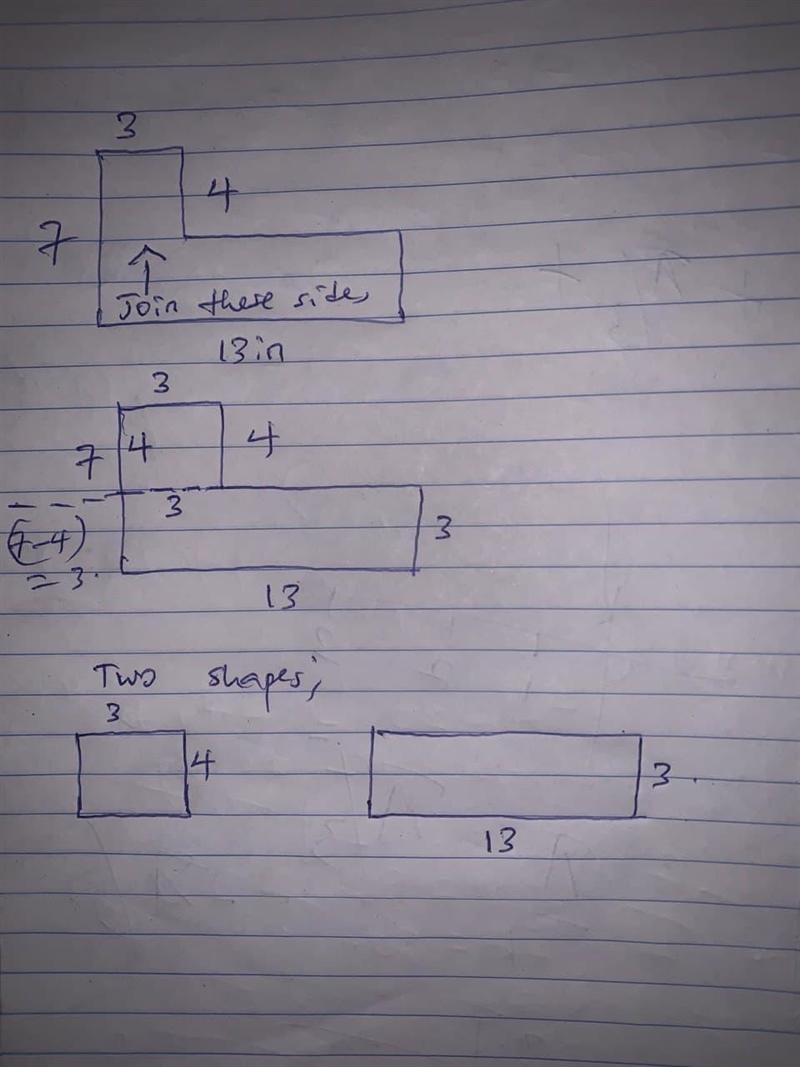 3
7
4
Join these sides
13in
3
7 4 4
3
(7-4)
= 3.
3
13
Two shapes;
3
4
3.
13